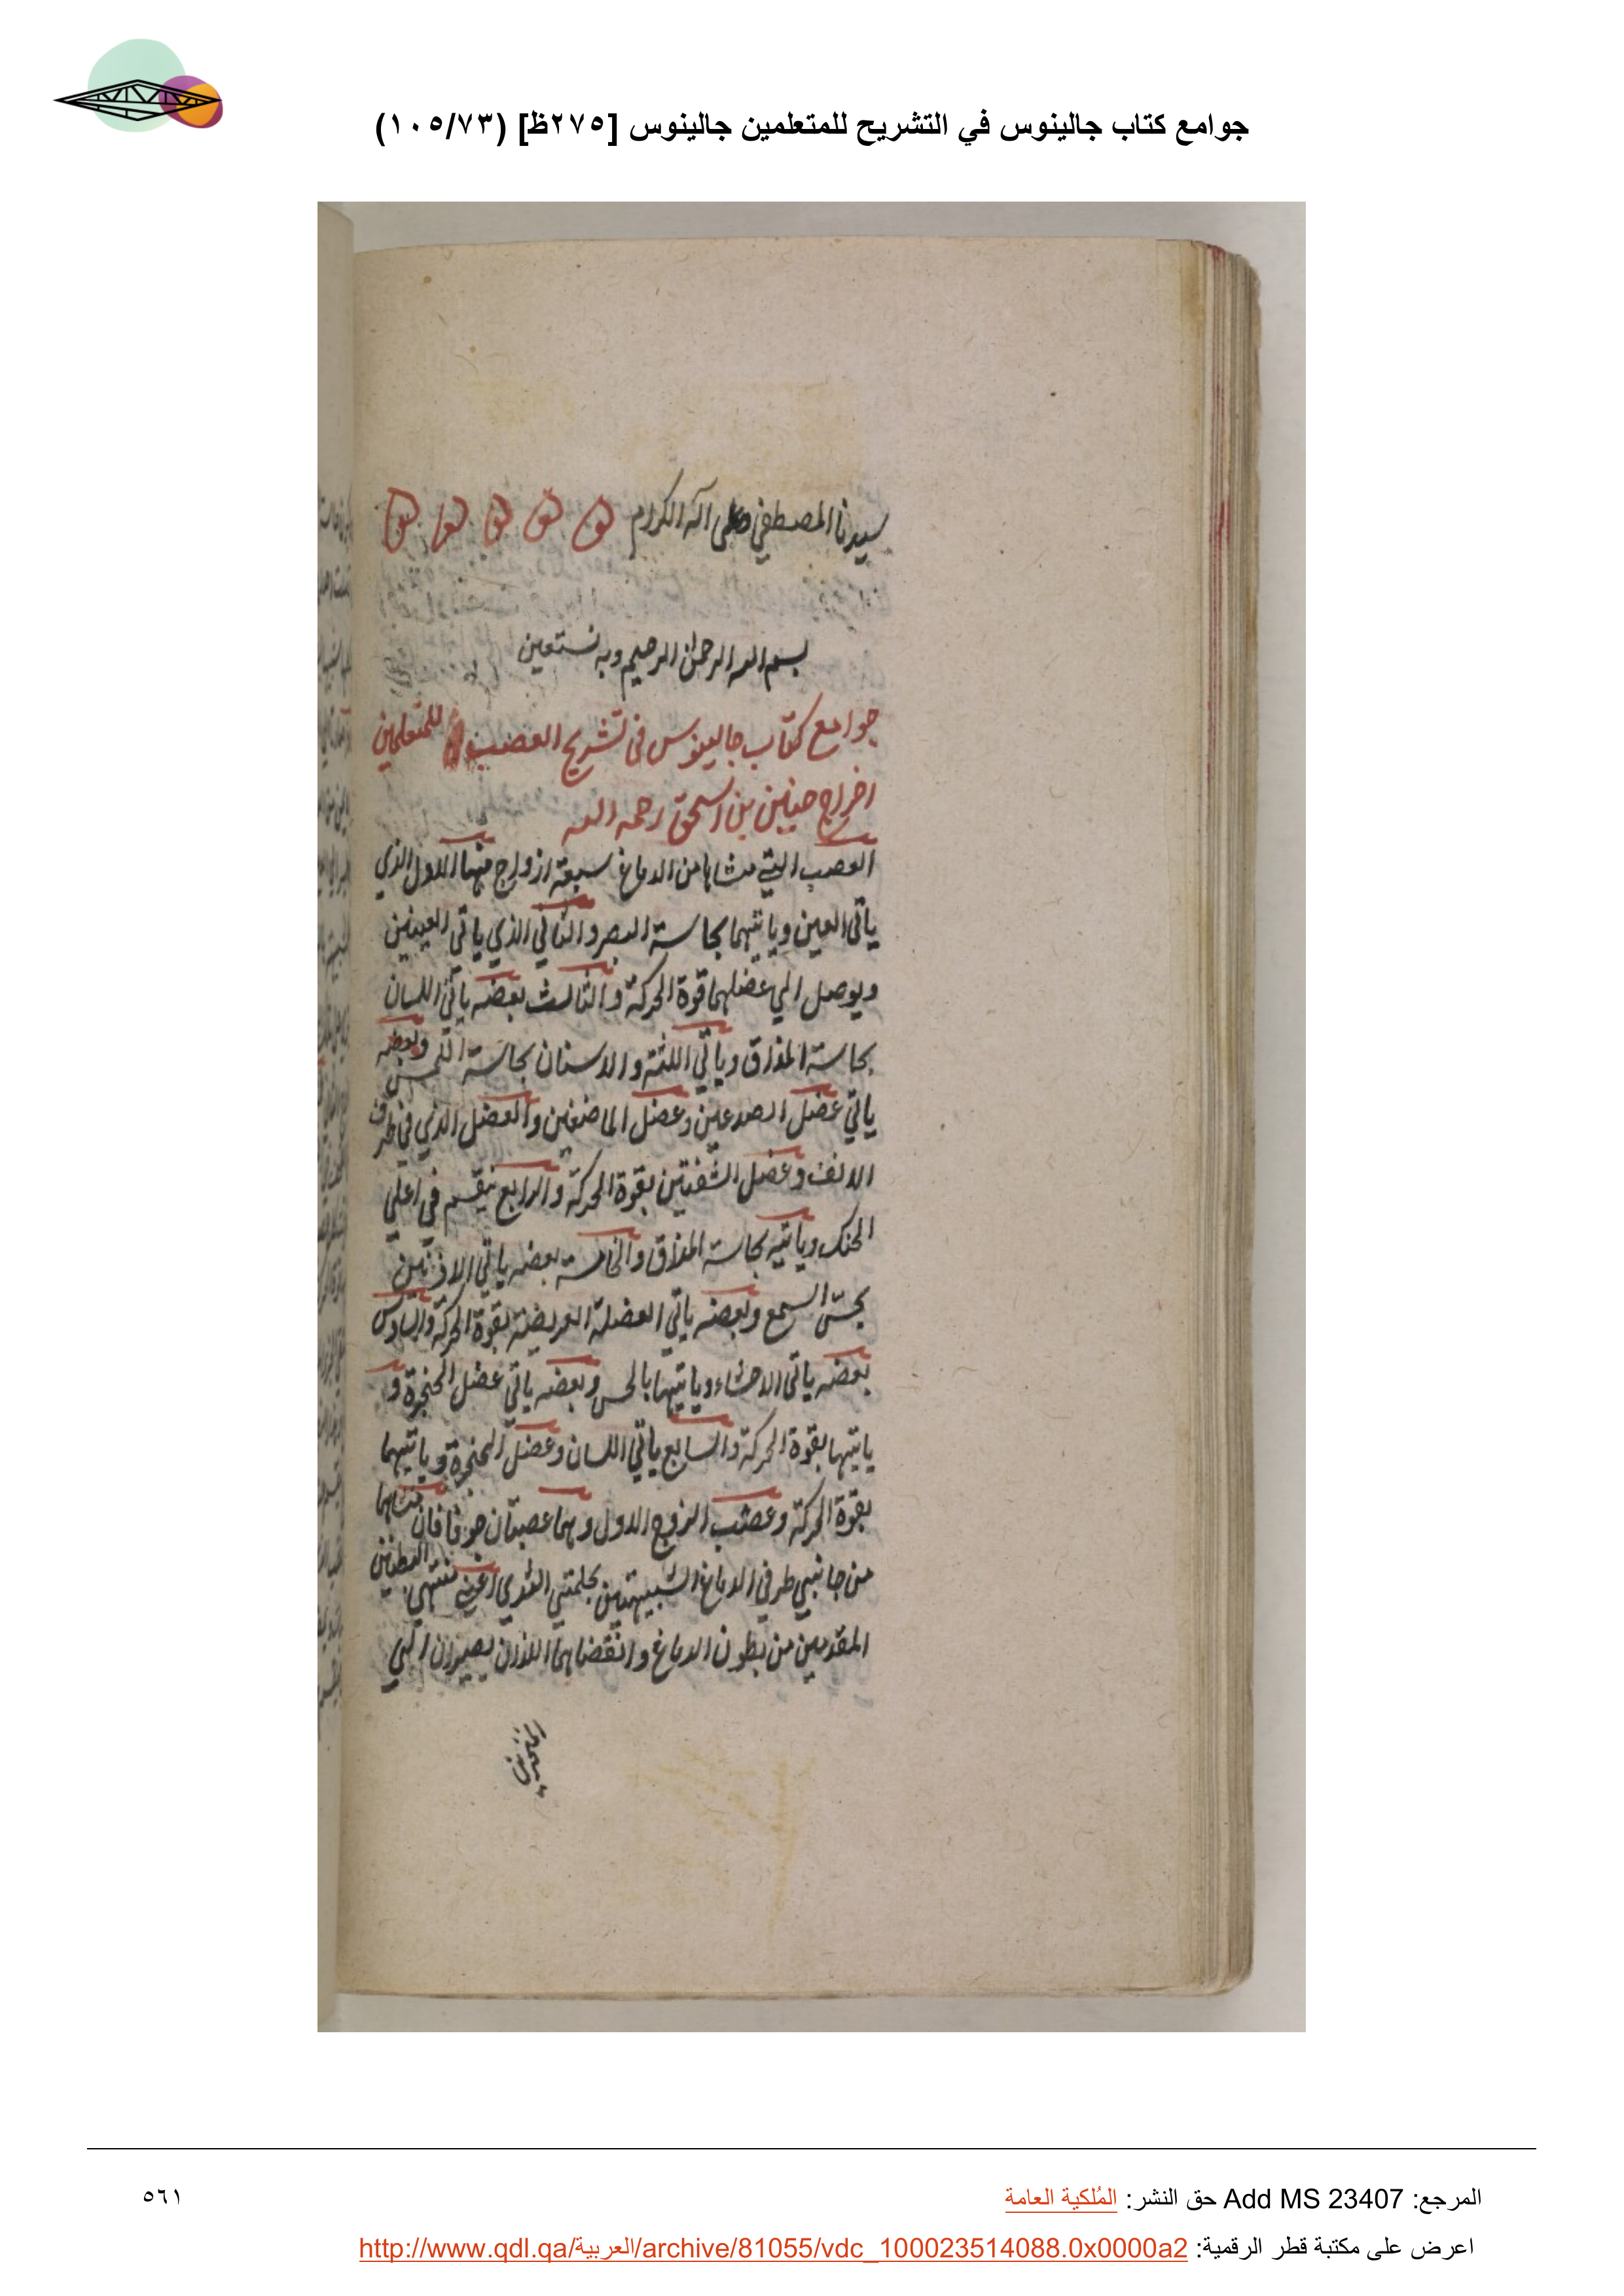 جوامع كتاب جالينوس في التشريح للمتعلمين جالينوس [٢٧٥ظ] (١٠٥/٧٣)
سيدنا المصطفي وعلى اله الكرام
بسم الله الرحمن الرحيم وبه نستعين
جوامع كتاب جالينوس فى تشريح العصب للمتعلمين
اخراج حنين بن اسحق رحمه الله
العصب التي منشاها من الدماغ سبعة ازواج منها الاول الذي
ياتى العين وياتيهما بحاسة البصر والثاني الذي ياتى العينين
ويوصل الي عضلهما قوة الحركة والثالث بعضه ياتى اللسان
بحاسة المذاق وياتي اللثة والاسنان بحاسة اللمس وبعضه
ياتي عضل الصدغين وعضل الماضغين والعضل الذي في طرف
الانف وعضل الشفتين بقوة الحركة والرابع ينقسم في اعلي
الحنك وياتيه بحاسة المذاق والخامسة بعضه ياتي الاذنين
بحس السمع وبعضه ياتي العضلة العريضة بقوة الحركة والسادس
بعضه ياتى الاحشاء وياتيها بالحس وبعضه ياتي عضل الحنجرة و
ياتيها بقوة الحركة والسابع ياتي اللسان وعضل الحنجرة وياتيهما
بقوة الحركة وعصب الزوج الاول وهما عصبتان جوفاوان منشاهما
من جانبي طرفي الدماغ الشبيهتين بحلمتي الثدي اعني منتهي البطنين
المقدمين من بطون الدماغ وانقضاهما اللذان يصيران الي
المرجع: Add MS 23407 حق النشر: المُلكية العامة
٥٦١
اعرض على مكتبة قطر الرقمية: http://www.qdl.qa/العربية/archive/81055/vdc_100023514088.0x0000a2